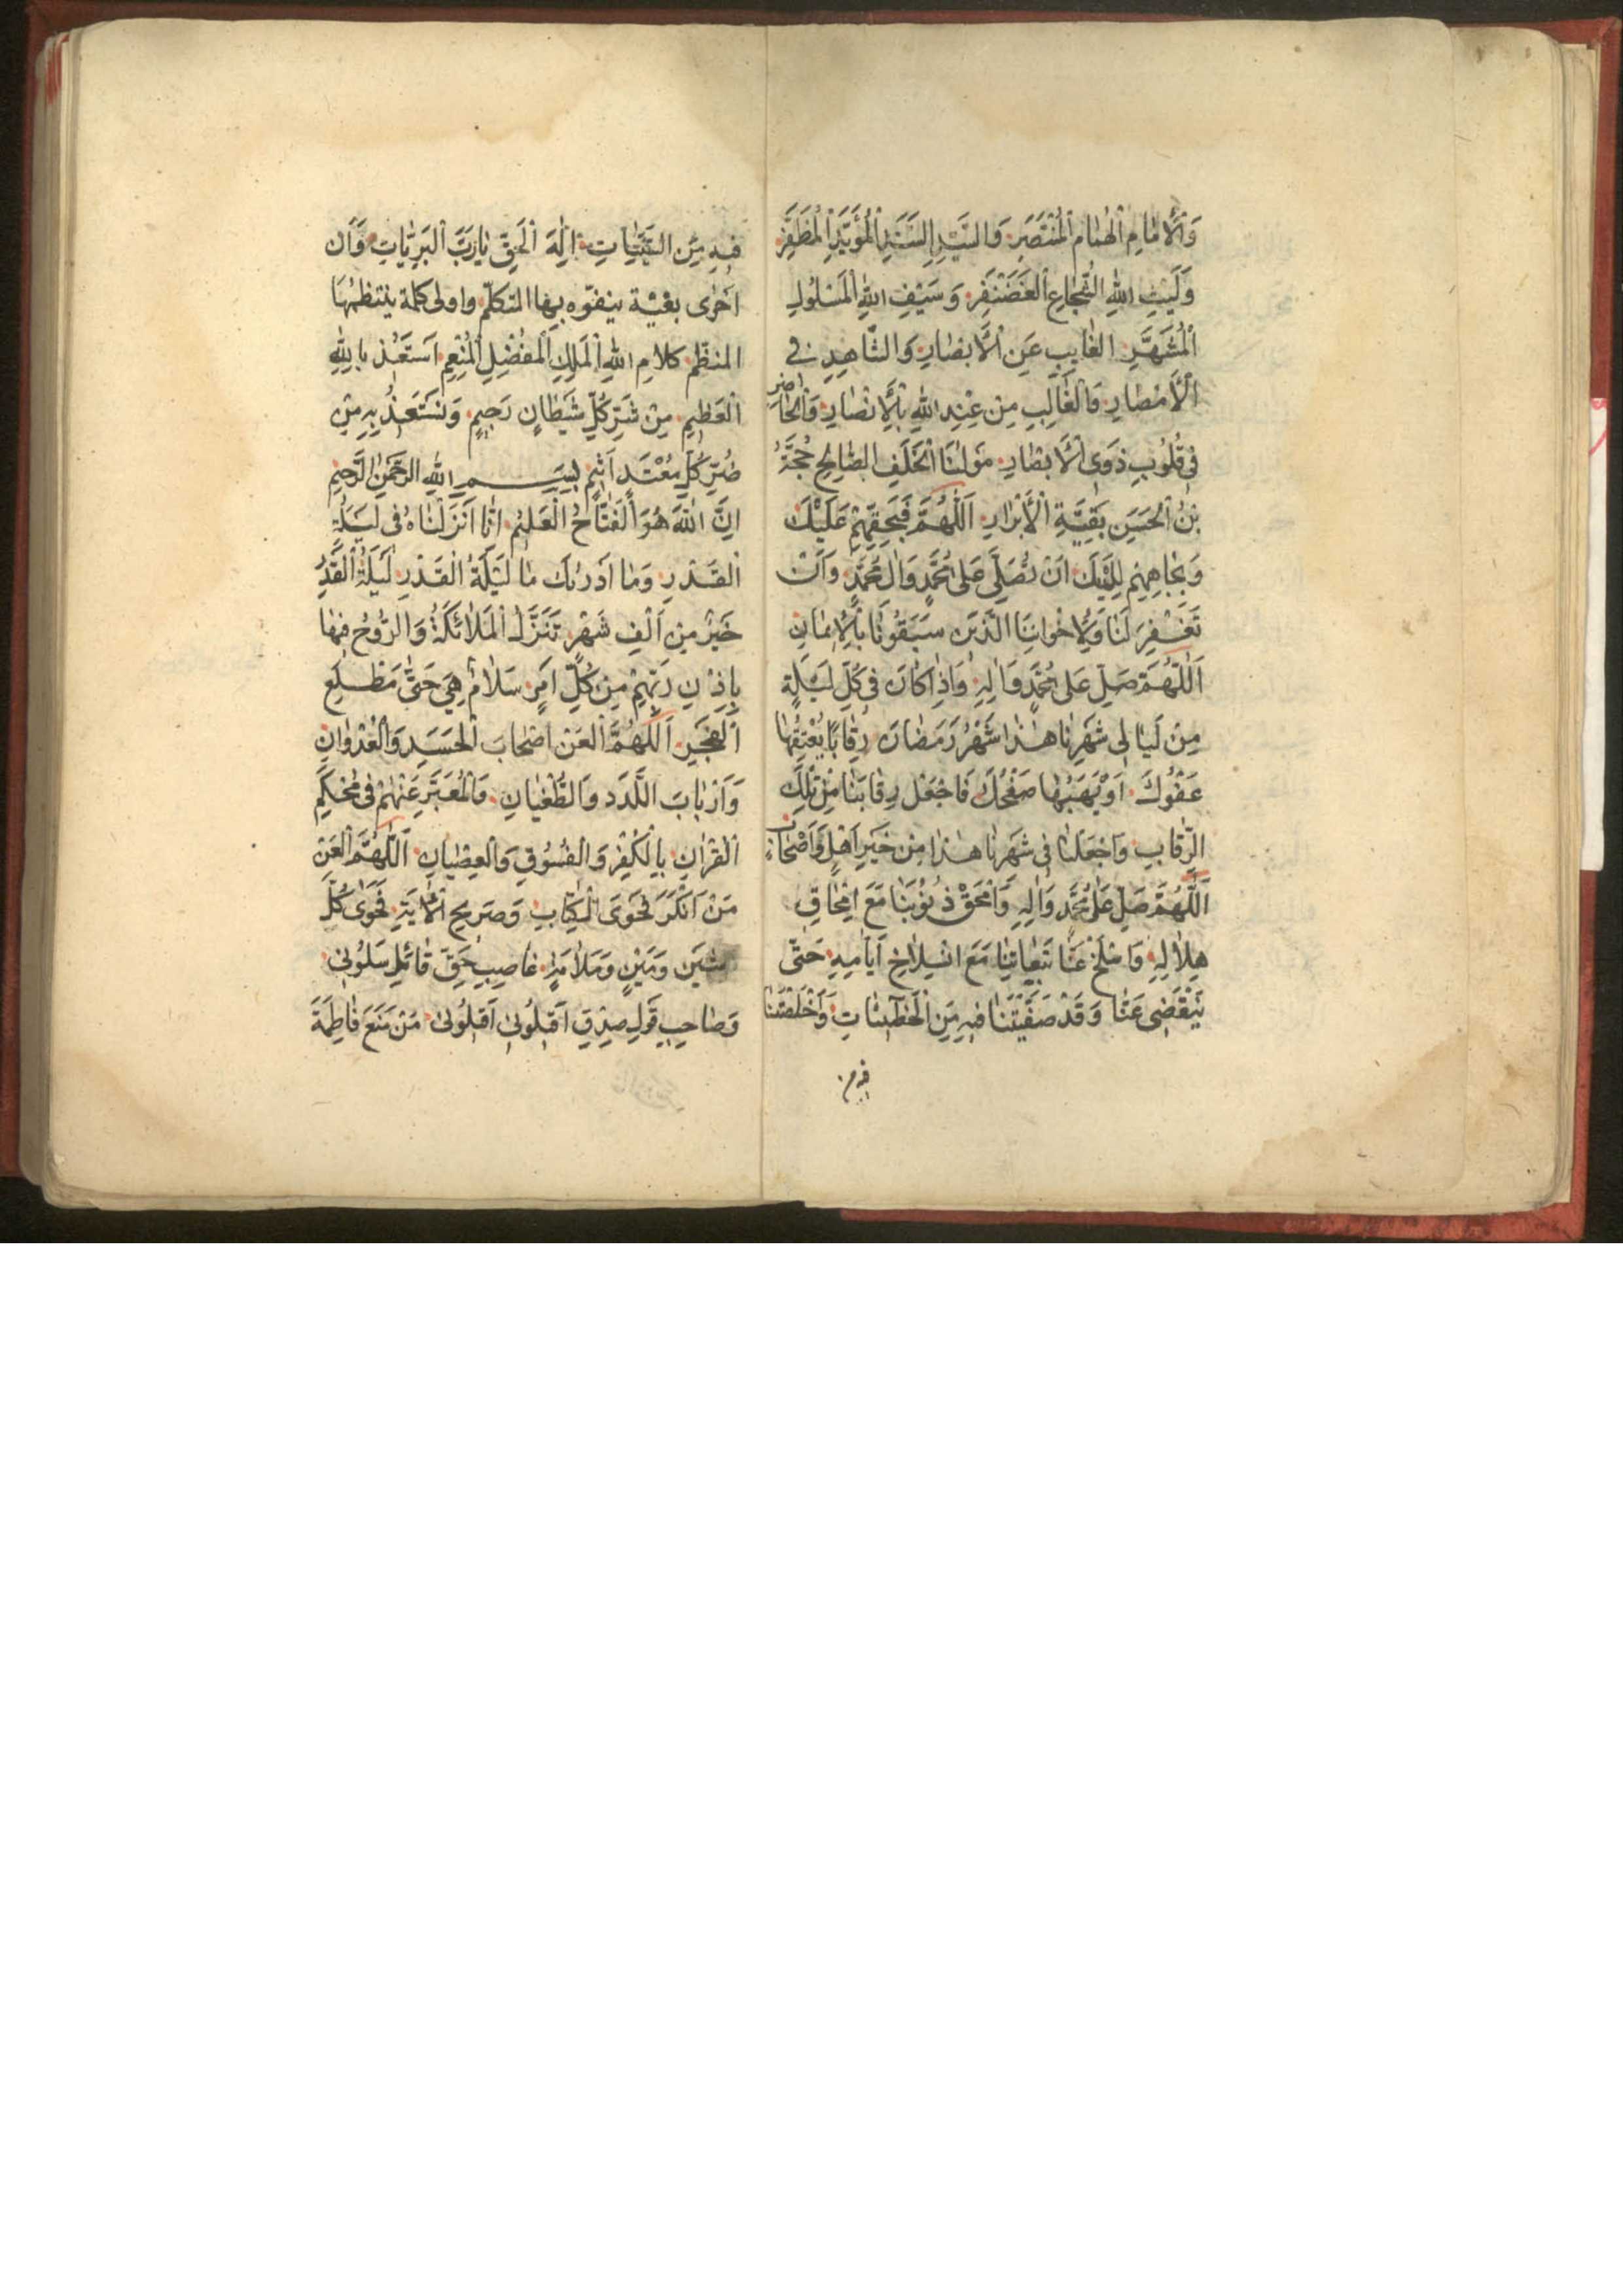 وَالْأِمَامِ الْهُمَامِ الْمُنْتَصَرِ وَالسَّيِّدِ السَّنَدِ الْمُؤَيَّدِ الْمُظَفَّرِ
وَلَيْثِ اللهِ الشُّجَاعِ الْغَضَنْفَرِ وَسَيْفِ اللهِ الْمَسْلُولِ
الْمُشَهَّرِ الْغَايِبِ عَنِ الْأَبْصَارِ وَالشَّاهِدِ فِي
الْأَمْصَارِ وَالْغَالِبِ مِنْ عِنْدِ اللهِ بِالْأَنْصَارِ وَالْحَاضِرِ
فِي قُلُوبِ ذَوِي الْأَبْصَارِ مَوْلَنَا الْخَلَفِ الصَّالِحِ حُجَّةُ
بْنُ الْحَسَنِ بَقِيَّةِ الْأَبْرَارِ اَللّٰهُمَّ فَبِحَقِّهِمْ عَلَيْكَ
وَبِجَاهِهِمْ لَدَيْكَ اَنْ تُصَلِّيَ عَلَى مُحَمَّدٍ وَالِ مُحَمَّدٍ وَاَنْ
تَغْفِرَ لَنَا وَلِاِخْوَانِنَا الَّذِينَ سَبَقُونَا بِالْاِيمَانِ
اَللّٰهُمَّ صَلِّ عَلَى مُحَمَّدٍ وَالِهِ وَاِذَا كَانَ فِي كُلِّ لَيْلَةٍ
مِنْ لَيَالِي شَهْرِنَا هٰذَا شَهْرُ رَمَضَانَ رِقَابًا يُعْتِقُهَا
عَفْوُكَ اَوْ يَهَبُهَا صَفْحُكَ فَاجْعَلْ رِقَابَنَا مِنْ تِلْكَ
الرِّقَابِ وَاجْعَلْنَا فِي شَهْرِنَا هٰذَا مِنْ خَيْرِ اَهْلٍ وَاَصْحَابٍ
اَللّٰهُمَّ صَلِّ عَلَى مُحَمَّدٍ وَالِهِ وَامْحَقْ ذُنُوْبَنَا مَعَ امْحَاقِ
هِلَالِهِ وَاسْلَخْ عَنَّا تَبِعَاتِنَا مَعَ انْسِلَاخِ اَيَّامِهِ حَتَّى
يَنْقَضِيَ عَنَّا وَقَدْ صَفَّيْتَنَا فِيهِ مِنَ الْخَطِيئَاتِ وَاَخْلَصْتَنَا
فيه من
فِيهِ مِنَ السَّيِّئَاتِ اِلٰهَ الْحَقِّ يَا رَبَّ الْبَرِيَّاتِ وَاَن
اَحْرٰى بغية يتفوّه بها المتكلّم واولى كلمة ينتظمُهَا
المنظّم كَلَامِ اللهِ الْمَلِكِ الْمُفْضِلِ الْمُنْعِمِ اَسْتَعِيْذُ بِاللهِ
الْعَظِيمِ مِنْ شَرِّ كُلِّ شَيْطَانٍ رَجِيمٍ وَنَسْتَعِيذُ بِهِ مِنْ
ضُرِّ كُلِّ مُعْتَدٍ اَثِيْمٍ بِسْمِ اللهِ الرَّحْمٰنِ الرَّحِيْمِ
اِنَّ اللهَ هُوَ الْفَتَّاحُ الْعَلِيْمُ اِنَّا اَنْزَلْنَاهُ فِي لَيْلَةِ
الْقَدْرِ وَمَا اَدْرٰيكَ مَا لَيْلَةُ الْقَدْرِ لَيْلَةُ الْقَدْرِ
خَيْرٌ مِنْ اَلْفِ شَهْرٍ تَنَزَّلُ الْمَلَائِكَةُ وَالرُّوْحُ فِيهَا
بِاِذْنِ رَبِّهِمْ مِنْ كُلِّ اَمْرٍ سَلَامٌ هِيَ حَتَّى مَطْلَعِ
الْفَجْرِ اَللّٰهُمَّ الْعَنْ اَصْحَابَ الْحَسَدِ وَالْعُدْوَانِ
وَاَرْبَابَ اللَّدَدِ وَالطُّغْيَانِ وَالْمُعَبَّرِ عَنْهُمْ فِي مُحْكَمِ
الْقُرْاٰنِ بِالْكُفْرِ وَالْفُسُوْقِ وَالْعِصْيَانِ اَللّٰهُمَّ الْعَنْ
مَنْ اَنْكَرَ فَحْوَى الْكِتَابِ وَصَرِيحِ الْاٰيَةِ فَحَوٰى كُلَّ
شَيْنٍ وَمَيْنٍ وَمَلَامَةٍ غَاصِبِ حَقِّ قَائِلِ سَلُوْنِي
وَصَاحِبِ قَوْلِ صِدْقِ اَقِيلُوْنِي اَقِيلُوْنِي مَنْ مَنَعَ فَاطِمَةَ